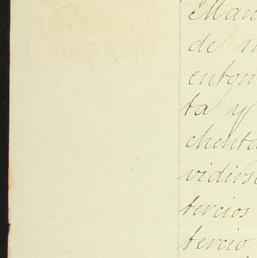 Man
de m
enton
ta y
chenta
vidirse
tercios
tercio